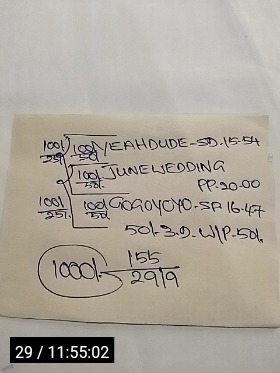 100/ 100/ YEAHDUDE-SD.15-54
25/ 50/
100/ JUNEWEDDING
50/ PP.20.00
100/ 100/ GOGOYOYO-SP.16-47
25/ 50/
50/- 3.D. W/P-50/.
1000/- 155
2919
29 / 11:55:02